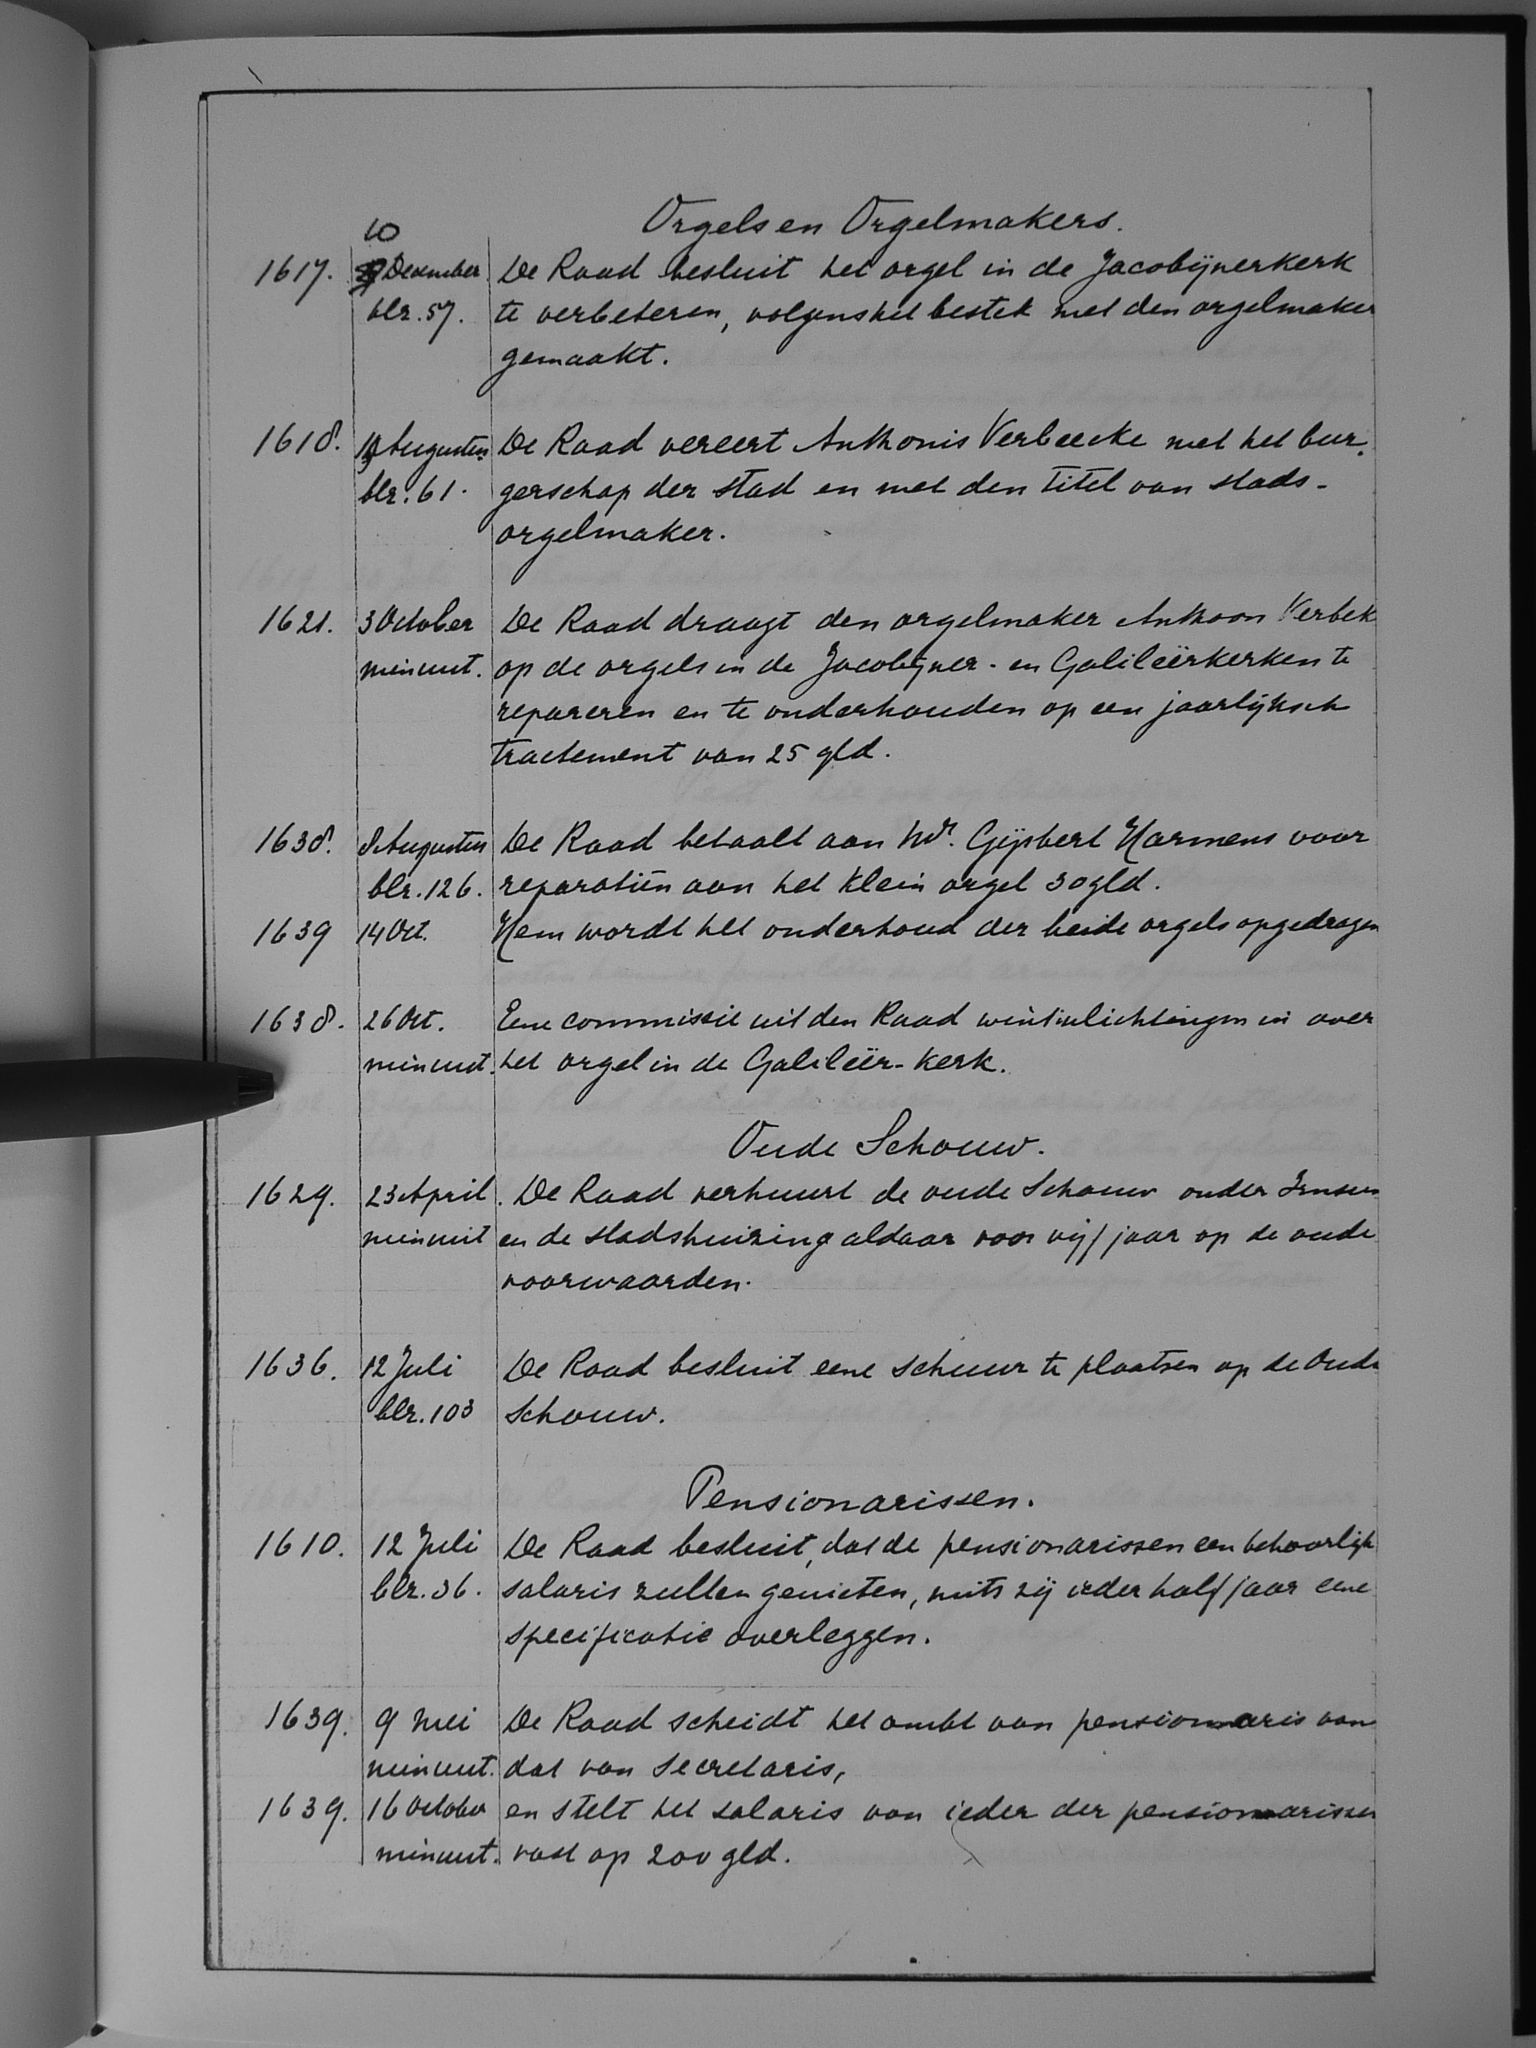 Orgels en Orgelmakers.
10
1617. December De Raad besluit het orgel in de Jacobijnerkerk
blz. 57. te verbeteren, volgens het bestek met den orgelmaker
gemaakt.
1618. Augustus De Raad vereert Anthonis Verbeecke met het bur-
blz. 61. gerschap der stad en met den titel van stads-
orgelmaker.
1621. 3 October De Raad draagt den orgelmaker Anthoon Verbek
minuut. op de orgels in de Jacobijner- en Galileërkerken te
repareren en te onderhouden op een jaarlijksch
tractement van 25 gld.
1638. 8 Augustus De Raad betaalt aan Mr. Gijsbert Harmens voor
blz. 126. reparatiën aan het klein orgel 30 gld.
1639 14 Oct. Hem wordt het onderhoud der beide orgels opgedragen
1638. 26 Oct. Eene commissie uit den Raad wint inlichtingen in over
minuut. het orgel in de Galileër-kerk.
Oude Schouw.
1629. 23 April. De Raad verhuurt de oude Schouw onder Irnsum
minuut en de stadshuizinge aldaar voor vijf jaar op de oude
voorwaarden.
1636. 12 Juli De Raad besluit eene schuur te plaatsen op de Oude
blz. 103 Schouw.
Pensionarissen.
1610. 12 Juli De Raad besluit, dat de pensionarissen een behoorlijk
blz. 36. salaris zullen genieten, mits zij ieder half jaar eene
specificatie overleggen.
1639. 9 Mei De Raad scheidt het ambt van pensionaris van
minuut. dat van Secretaris,
1639. 16 October en stelt het salaris van ieder der pensionarissen
minuut. vast op 200 gld.